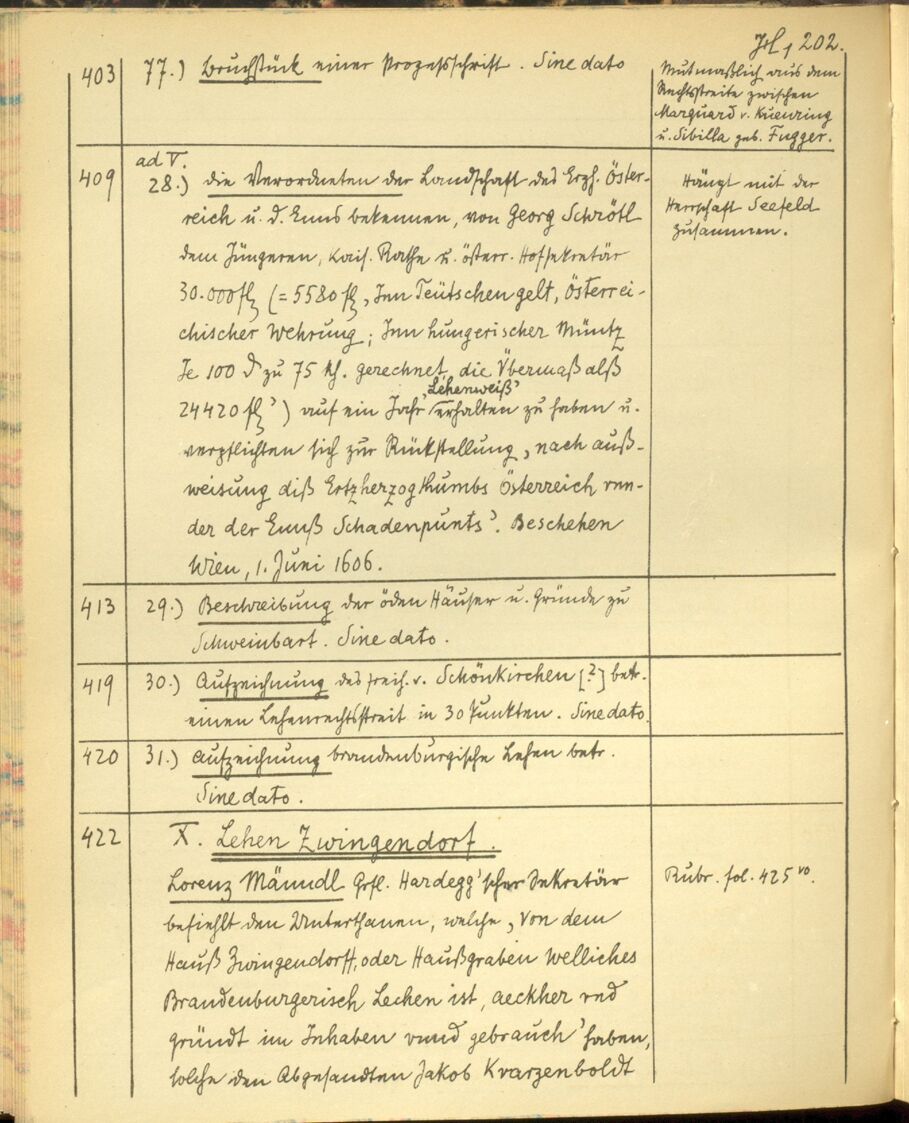 Hs, 202.
403 77.) Bruchstück einer Prozessschrift. Sine dato
Mutmaßlich aus dem
Rechtsstreite zwischen
Marquard v. Kuenring
u. Sibilla geb. Fugger.
ad V.
409 28.) die Verordneten der Landschaft des Erzh. Öster-
reich u. d. Enns bekennen, von Georg Schrötl
dem Jüngeren, kais. Rathe u. österr. Hofsekretär
30.000 fl (= 5580 fl, Inn Teütschen gelt, Österrei-
chischer Wehrung; Inn hungerischer Müntz
Je 100 ₰ zu 75 kh. gerechnet, die Übermaß alß
24420 fl') auf ein Jahr 'Lehenweiß' erhalten zu haben u.
verpflichten sich zur Rückstellung, nach auß-
weisung diß Ertzherzogthumbs Österreich vnn-
der der Ennß Schadenpunts'. Beschehen
Wien, 1. Juni 1606.
Hängt mit der
Herrschaft Seefeld
zusammen.
413 29.) Beschreibung der öden Häuser u. Gründe zu
Schweinbart. Sine dato.
419 30.) Aufzeichnung des freih. v. Schönkirchen [?] betr.
einen Lehenrechtsstreit in 30 Punkten. Sine dato.
420 31.) Aufzeichnung brandenburgische Lehen betr.
Sine dato.
422 X. Lehen Zwingendorf.
Lorenz Männdl Grfl. Hardegg'scher Sekretär
befiehlt den Unterthanen, welche, von dem
Hauß Zwingendorff, oder Haußgraben welliches
Brandenburgerisch Lechen ist, aeckher vnd
gründt im Inhaben vnnd gebrauch' haben,
solche den Abgesandten Jakob Kvarzenboldt
Rubr. fol. 425 vo.